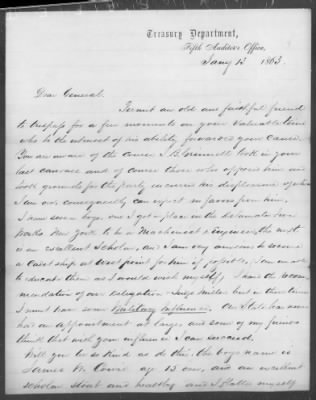 Treasury Department,
Fifth Auditor's Office,
Jany 13 1863.
Dear General.
Permit an old and faithful friend
to trespass for a few moments on your valuable time
who to the utmost of his ability forwarded your cause.
You are aware of the course J. B. Grinnell took in your
last canvass and of course those who opposed him and
took grounds for the party incurred his displeasure of whom
I am one, consequently can expect no favors from him,
I have seven boys, one I got a place in the
Works New York to be a Machinest & Engineer, the next
is an excellent Scholar, and I am very anxious to secure
a Cadet ship at West point for him if possible, I am not able
to educate them as I would wish myself, I have the recom-
mendation of our delegation Judge Miller but in these times
I must have some Military influence. Our State has none
has an appointment at large, and some of my friends
think that with your influence I can succeed.
Will you be so kind as do this, the boys name is
James M age 15 and an excellent
scholar stout and healthy and I flatter myself